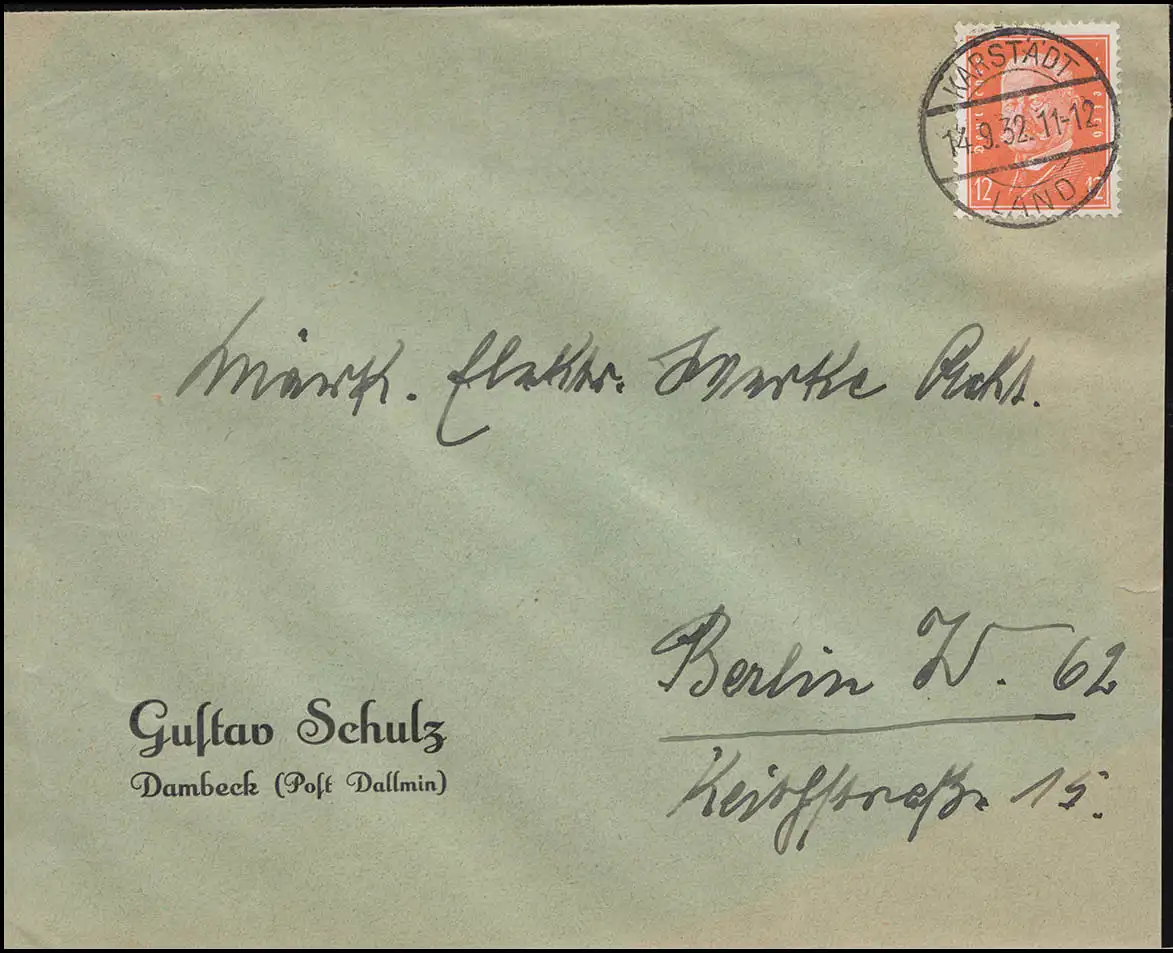 KARSTÄDT
14.9.32.11-12
LAND
12 12
Märk. Elektr. Werke Akt.
Berlin W. 62
Keithstraße 15.
Guſtav Schulz
Dambeck (Poſt Dallmin)